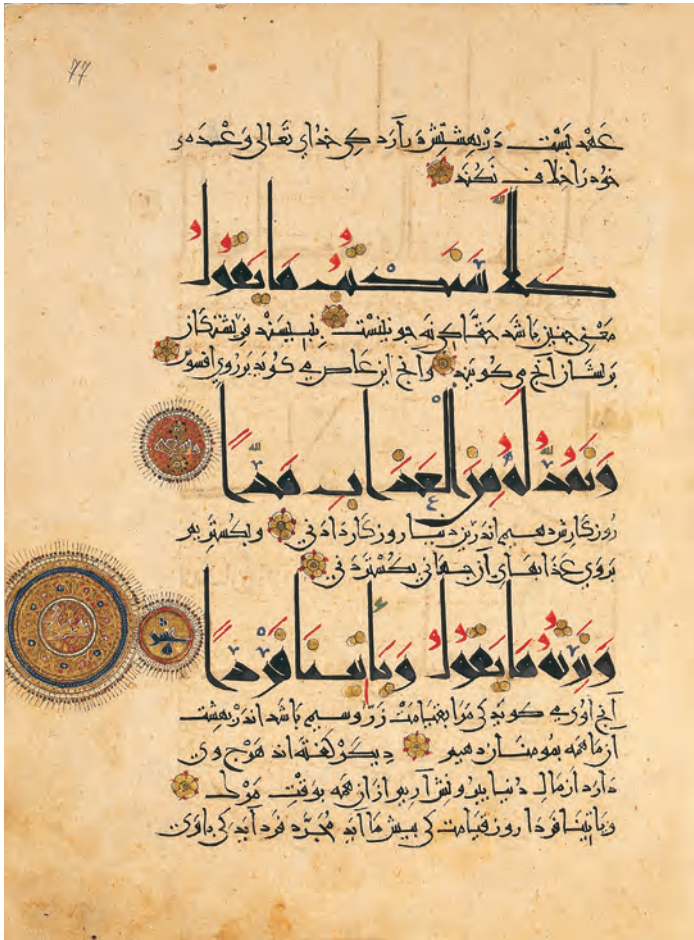 77
عهد نست در بهشتش در آرد کی خدای تعالی وعده
خود را خلاف نکند
كَلَّا سَنَكْتُبُ مَا يَقُولُ
معنی چنین باشد حقا کی نه چونینست بنبیسند فریشتگان
برایشان آنج می کویند وانج ابن عاص می کوید بر روی افسوس
وَنَمُدُّ لَهُ مِنَ الْعَذَابِ مَدًّا
روزکارش دهیم اندرین دنیا روزکار دادنی وبکستریم
بروی عذابهای آن جهانی بکستردنی
وَنَرِثُهُ مَا يَقُولُ وَيَأْتِينَا فَرْدًا
آنج اوی می کوید کی مرا بقیامت زر وسیم باشد اندر بهشت
از ما همه بمومنان دهیم دیکر کفته اند هرج وی
دارد از مال دنیا بیرونش آریم از آن همه بوقت مرك
ویاتینا فردا روز قیامت کی بیش ما آید مجرد فرد آید کی باوی